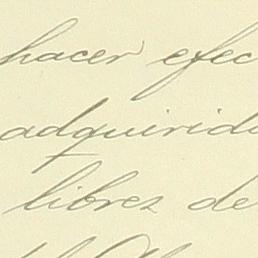 hacer efec
adquirido
libres de